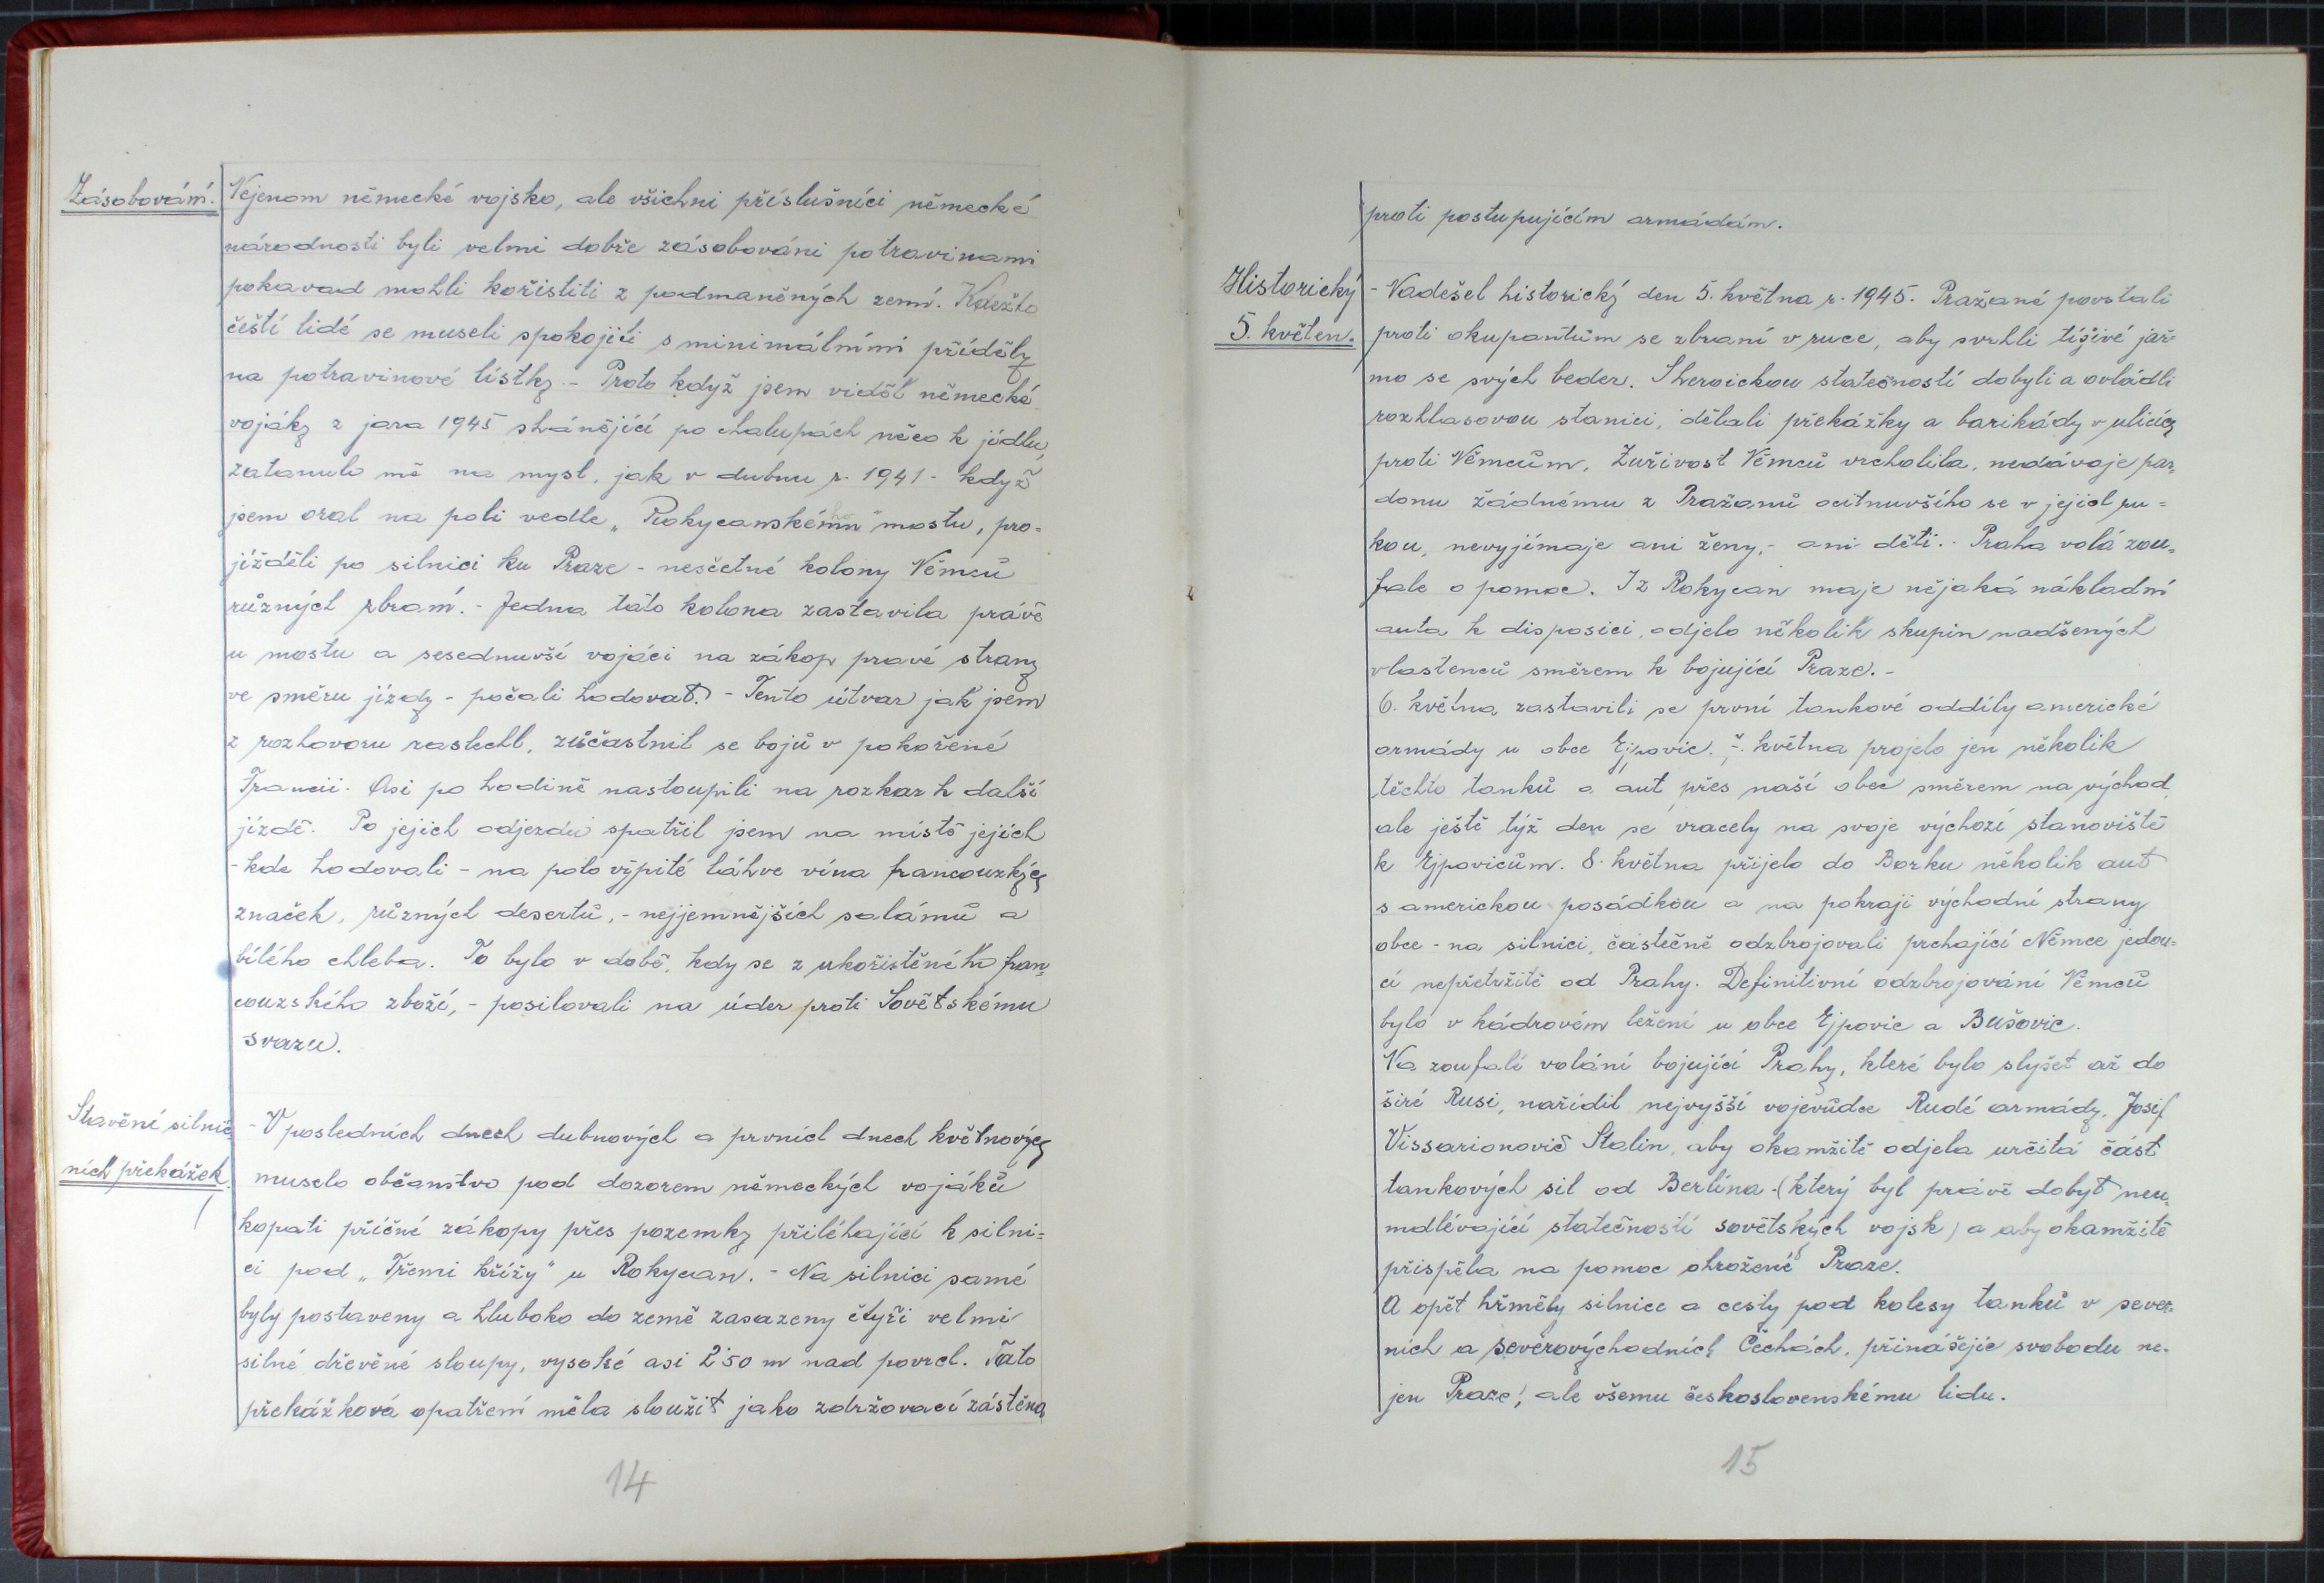 Zásobování.
Nejenom německé vojsko, ale všichni příslušníci německé
národnosti byli velmi dobře zásobováni potravinami
pokavad mohli kořistiti z podmaněných zemí. Kdežto
čeští lidé se museli spokojiti s minimálními příděly
na potravinové lístky. - Proto když jsem viděl německé
vojáky z jara 1945 shánějící po chalupách něco k jídlu,
zatanulo mě na mysl, jak v dubnu r. 1941 - když
jsem oral na poli vedle „Rokycanského" mostu, pro-
jížděli po silnici ku Praze - nesčetné kolony Němců
různých zbraní. - Jedna tato kolona zastavila právě
u mostu a sesednuvší vojáci na zákop pravé strany
ve směru jízdy - počali hodovat. - Tento útvar jak jsem
z rozhovoru zaslechl, zůčastnil se bojů v pokořené
Francii. Asi po hodině nastoupili na rozkaz k další
jízdě. Po jejich odjezdu spatřil jsem na místě jejich
- kde hodovali - na polo vypité láhve vína francouzkých
značek, různých desertů, - nejjemnějších salámů a
bílého chleba. To bylo v době, kdy se z ukořistěného fran-
couzského zboží, - posilovali na úder proti Sovětskému
svazu.
Stavění silnič-
ních překážek.
- V posledních dnech dubnových a prvních dnech květnových
muselo občanstvo pod dozorem německých vojáků
kopati příčné zákopy přes pozemky přiléhající k silni-
ci pod „Třemi kříži" u Rokycan. - Na silnici samé
byly postaveny a hluboko do země zasazeny čtyři velmi
silné dřevěné sloupy, vysoké asi 2'50 m nad povrch. Tato
překážková opatření měla sloužit jako zdržovací zástěna
14
proti postupujícím armádám.
Historický
5. květen.
- Nadešel historický den 5. května r. 1945. Pražané povstali
proti okupantům se zbraní v ruce, aby svrhli tíživé jař-
mo se svých beder. S heroickou statečností dobyli a ovládli
rozhlasovou stanici, dělali překážky a barikády v ulicích
proti Němcům. Zuřivost Němců vrcholila, nedávaje par-
donu žádnému z Pražanů ocitnuvšího se v jejich ru-
kou, nevyjímaje ani ženy, - ani děti. - Praha volá zou-
fale o pomoc. I z Rokycan maje nějaká nákladní
auta k disposici, odjelo několik skupin nadšených
vlastenců směrem k bojující Praze. -
6. května zastavili se první tankové oddíly americké
armády u obce Ejpovic. 7. května projelo jen několik
těchto tanků a aut přes naší obec směrem na východ,
ale ještě týž den se vracely na svoje výchozí stanoviště
k Ejpovicům. 8. května přijelo do Borku několik aut
s americkou posádkou a na pokraji východní strany
obce - na silnici, částečně odzbrojovali prchající Němce jedou-
cí nepřetržitě od Prahy. Definitivní odzbrojování Němců
bylo v kádrovém ležení u obce Ejpovic a Bušovic.
Na zoufalé volání bojující Prahy, které bylo slyšet až do
širé Rusi, nařídil nejvyšší vojevůdce Rudé armády, Josif
Vissarionovič Stalin, aby okamžitě odjela určitá část
tankových sil od Berlína - (který byl právě dobyt neu-
mdlévající statečností sovětských vojsk) a aby okamžitě
přispěla na pomoc ohrožené Praze.
A opět hřměly silnice a cesty pod kolesy tanků v sever-
ních a severovýchodních Čechách, přinášejíc svobodu ne-
jen Praze, ale všemu československému lidu.
15